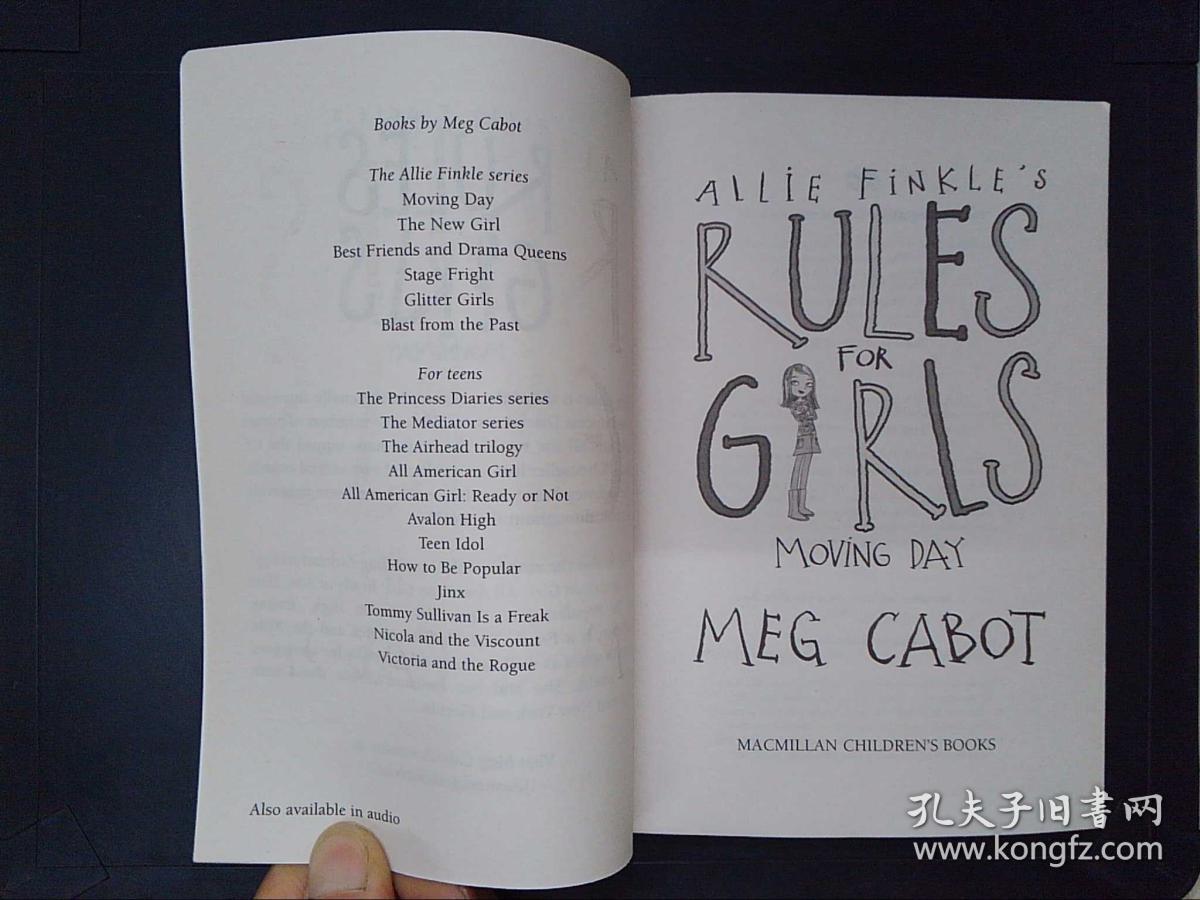 Books by Meg Cabot
The Allie Finkle series
Moving Day
The New Girl
Best Friends and Drama Queens
Stage Fright
Glitter Girls
Blast from the Past
For teens
The Princess Diaries series
The Mediator series
The Airhead trilogy
All American Girl
All American Girl: Ready or Not
Avalon High
Teen Idol
How to Be Popular
Jinx
Tommy Sullivan Is a Freak
Nicola and the Viscount
Victoria and the Rogue
Also available in audio
ALLiE FiNKLE'S
RULES
FOR
GiRLS
MOViNG DAY
MEG CABOT
MACMILLAN CHILDREN'S BOOKS
孔夫子旧書网
www.kongfz.com